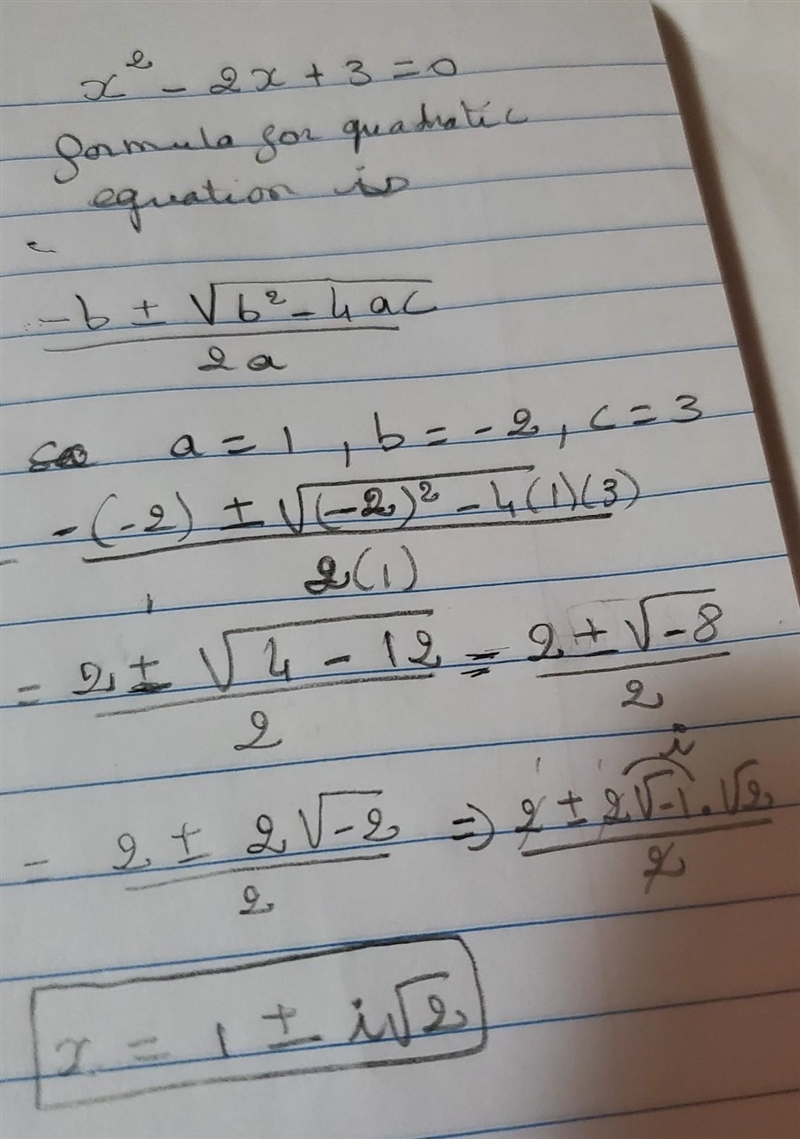 x² - 2x + 3 = 0
formula for quadratic
equation is
-b ± √(b² - 4ac)
2a
a = 1, b = -2, c = 3
-(-2) ± √((-2)² - 4(1)(3))
2(1)
= 2 ± √(4 - 12) = 2 ± √-8
2 2
= 2 ± 2√-2 ⇒ 2 ± 2√-1 . √2
2 2
i
x = 1 ± i√2